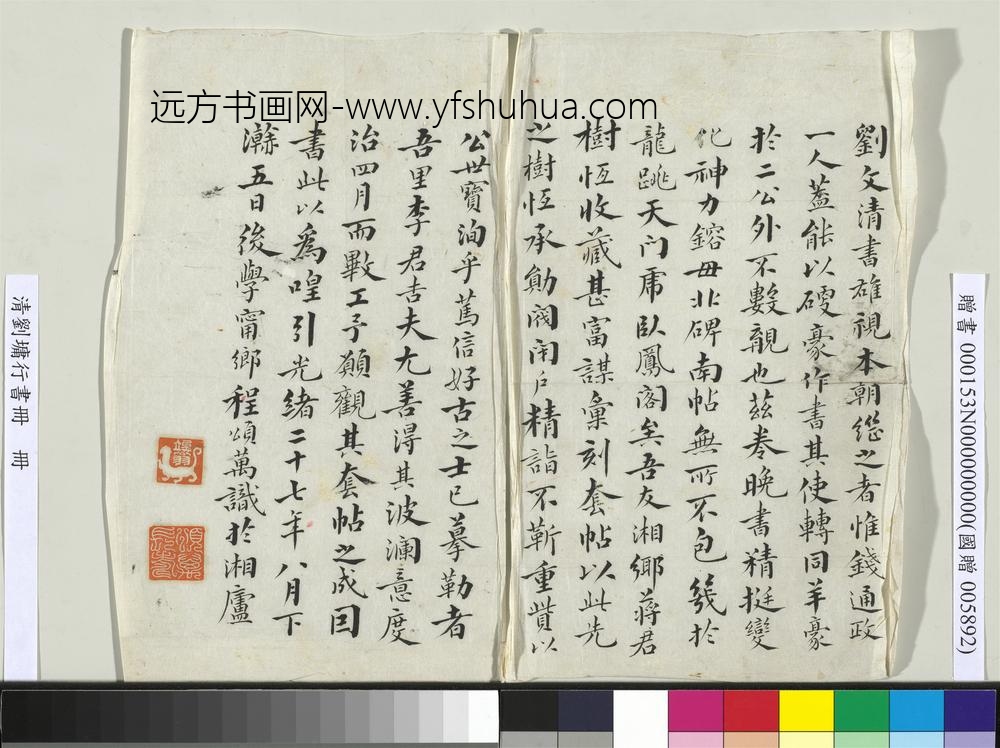 远方书画网-www.yfshuhua.com
劉文清書雄視本朝繼之者惟錢通政
一人蓋能以硬豪作書其使轉同羊豪
於二公外不數覯也茲卷晚書精挺變
化神力鎔毋北碑南帖無所不包幾於
龍跳天門虎臥鳳閣矣吾友湘鄉蔣君
樹恆收藏甚富謀彙刻套帖以此先
之樹恆承勛閥閉戶精詣不靳重貲以
公世寶洵乎篤信好古之士已摹勒者
吾里李君吉夫尤善得其波瀾意度
治四月而斁工予願觀其套帖之成因
書此以為喤引光緒二十七年八月下
澣五日後學甯鄉程頌萬識於湘廬
清劉墉行書冊 冊
贈書 000153N000000000(國贈 005892)